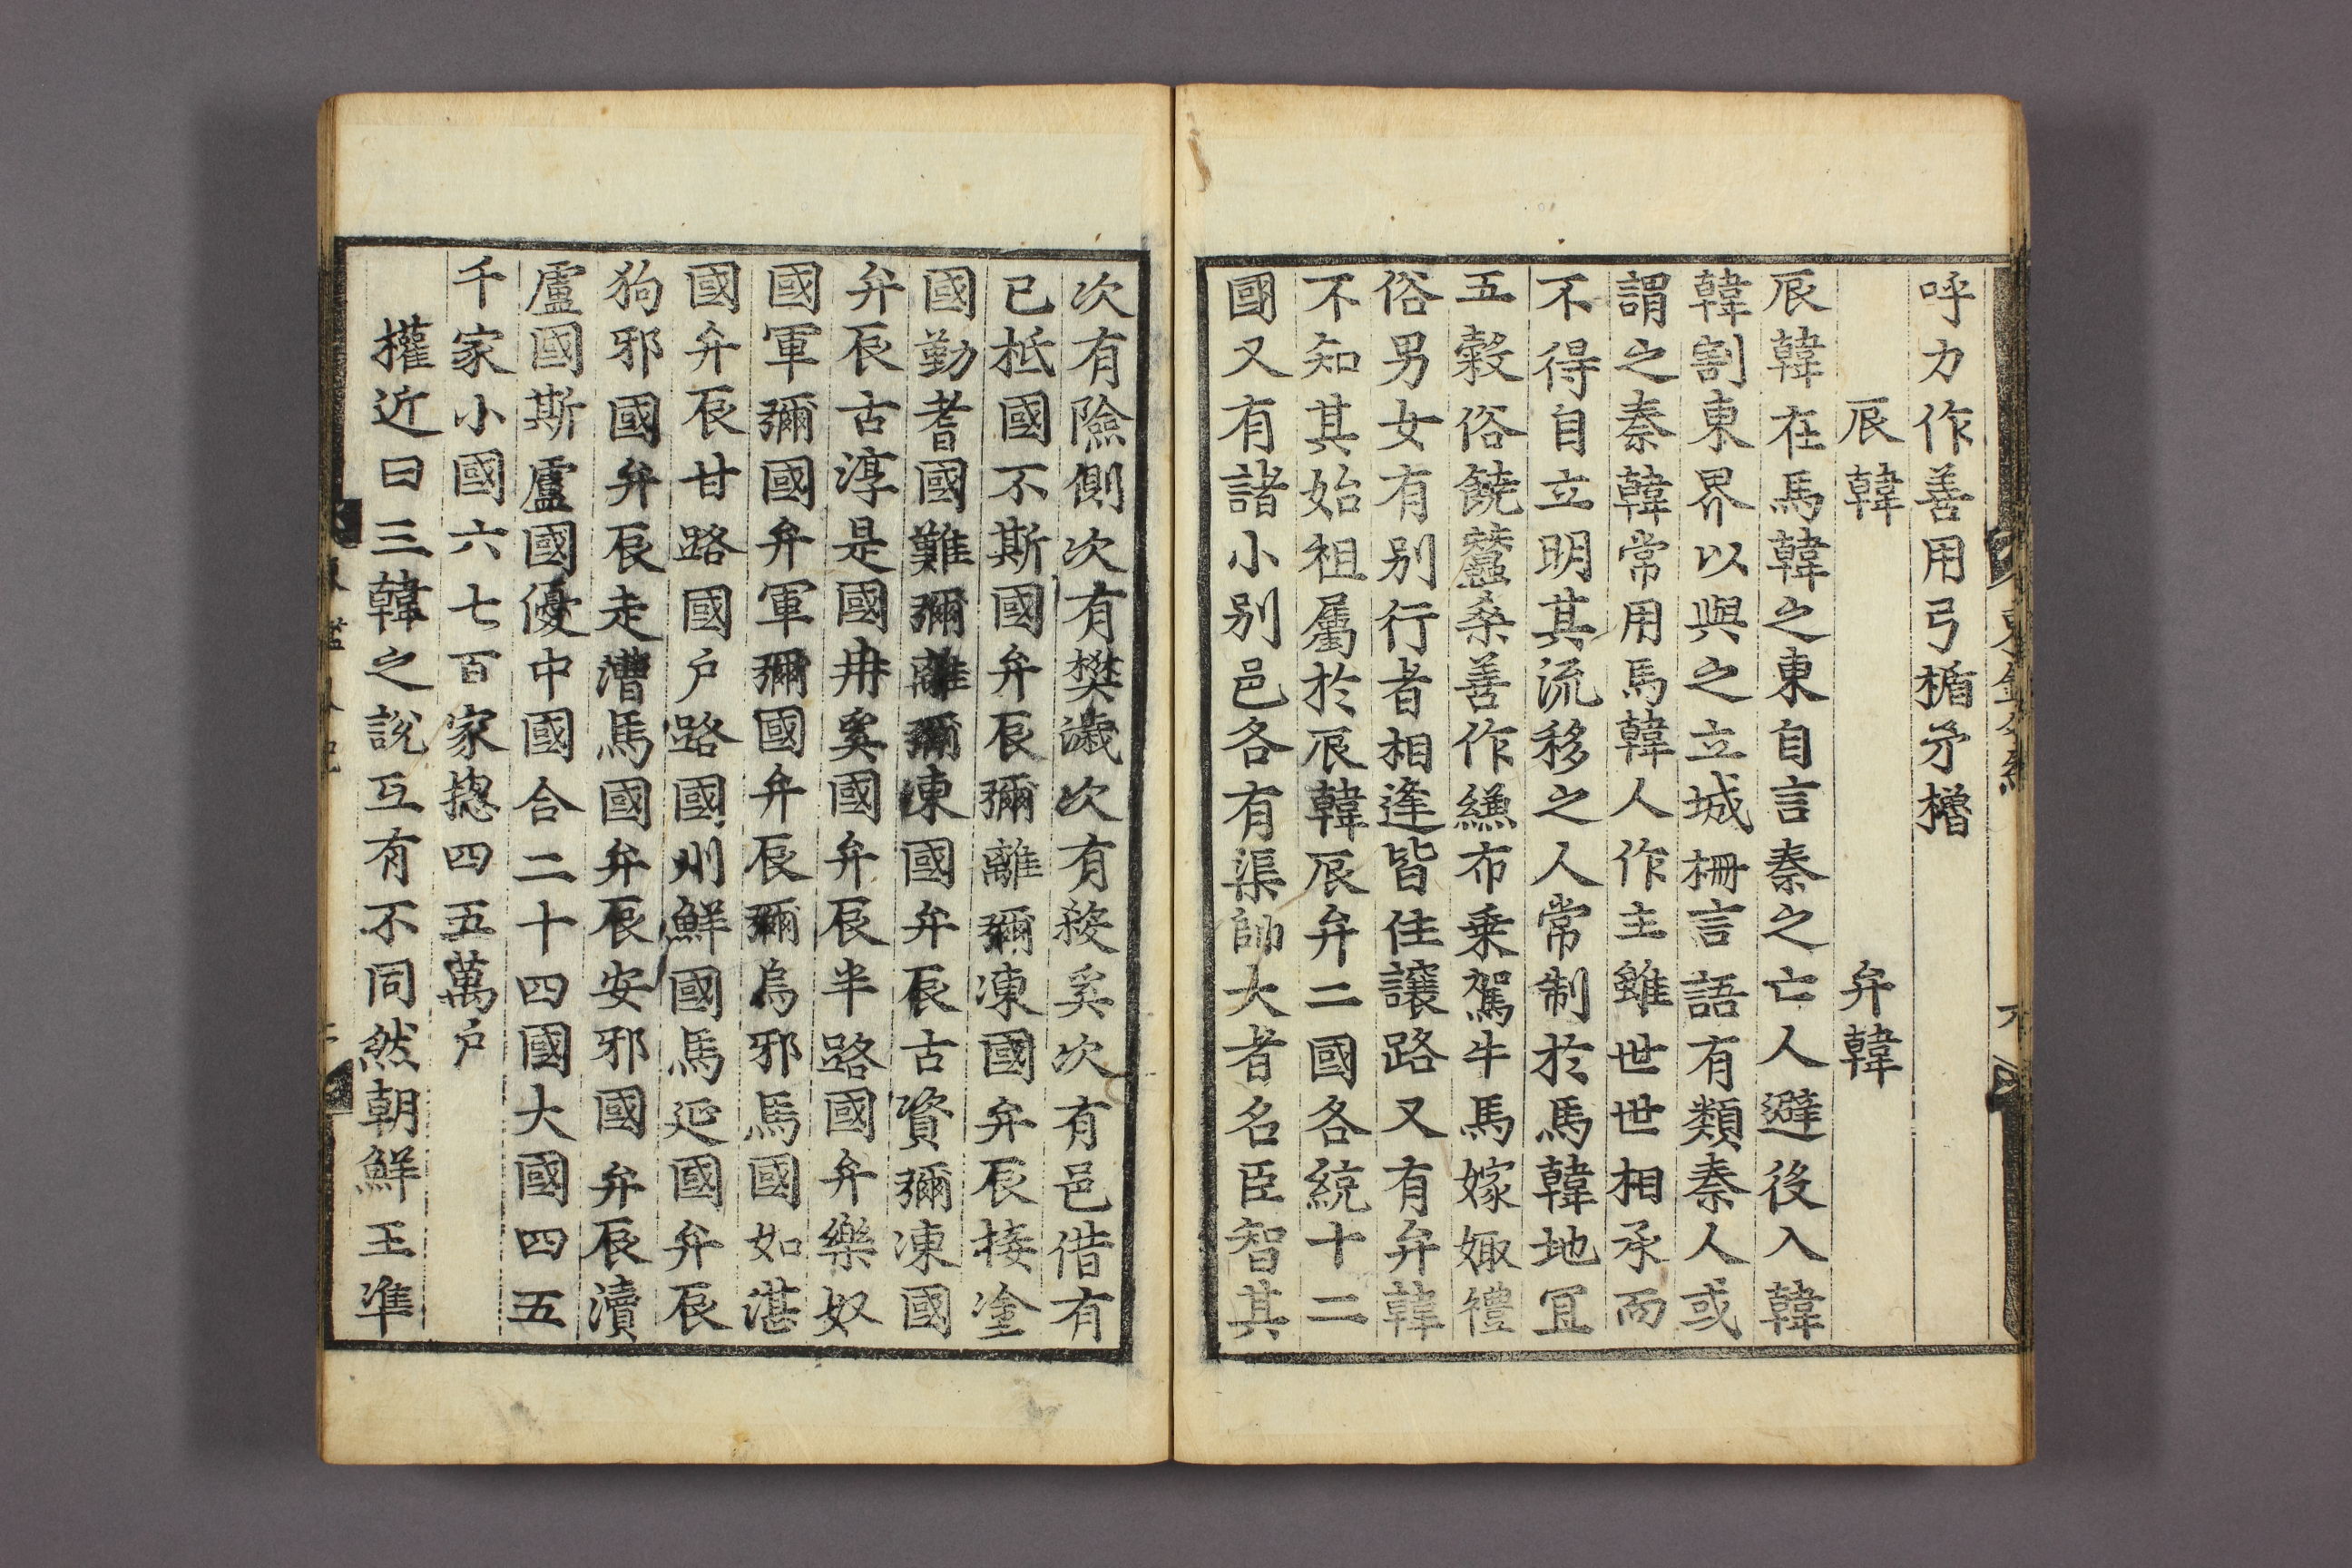 呼力作善用弓楯矛櫓
辰韓 弁韓
辰韓在馬韓之東自言秦之亡人避役入韓
韓割東界以與之立城柵言語有類秦人或
謂之秦韓常用馬韓人作主雖世世相承而
不得自立明其流移之人常制於馬韓地冝
五穀俗饒蠶桑善作縑布乗駕牛馬嫁娵禮
俗男女有别行者相逢皆住讓路又有弁韓
不知其始祖屬於辰韓辰弁二國各統十二
國又有諸小别邑各有渠帥大者名臣智其
次有險側次有樊濊次有蔱奚次有邑借有
已柢國不斯國弁辰彌離彌凍國弁辰接塗
國勤耆國難彌離彌凍國弁辰古資彌凍國
弁辰古淳是國冉奚國弁辰半路國弁樂奴
國軍彌國弁軍彌國弁辰彌烏邪馬國如湛
國弁辰甘路國户路國州鮮國馬延國弁辰
狗邪國弁辰走漕馬國弁辰安邪國弁辰瀆
盧國斯盧國優中國合二十四國大國四五
千家小國六七百家揔四五萬户
權近曰三韓之說互有不同然朝鮮王準